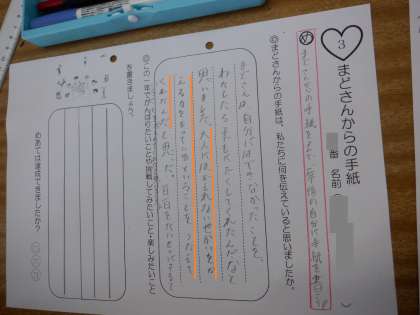 3 まどさんからの手紙
番 名前（　）
め まどさんの手紙をよんで、年後の自分に手紙を書こう
◎まどさんからの手紙は、私たちに何を伝えていると思いましたか。
まどさんは、自分にはできなかったことを、
わたしたち子どもにたくしてくれたんだなと
思いました。大人にはつくれないせかいを
くれたんだと思った。毎日を
◎この一年でがんばりたいことや挑戦してみたいこと・楽しみたいこと
を書きましょう。
めあては達成できましたか？